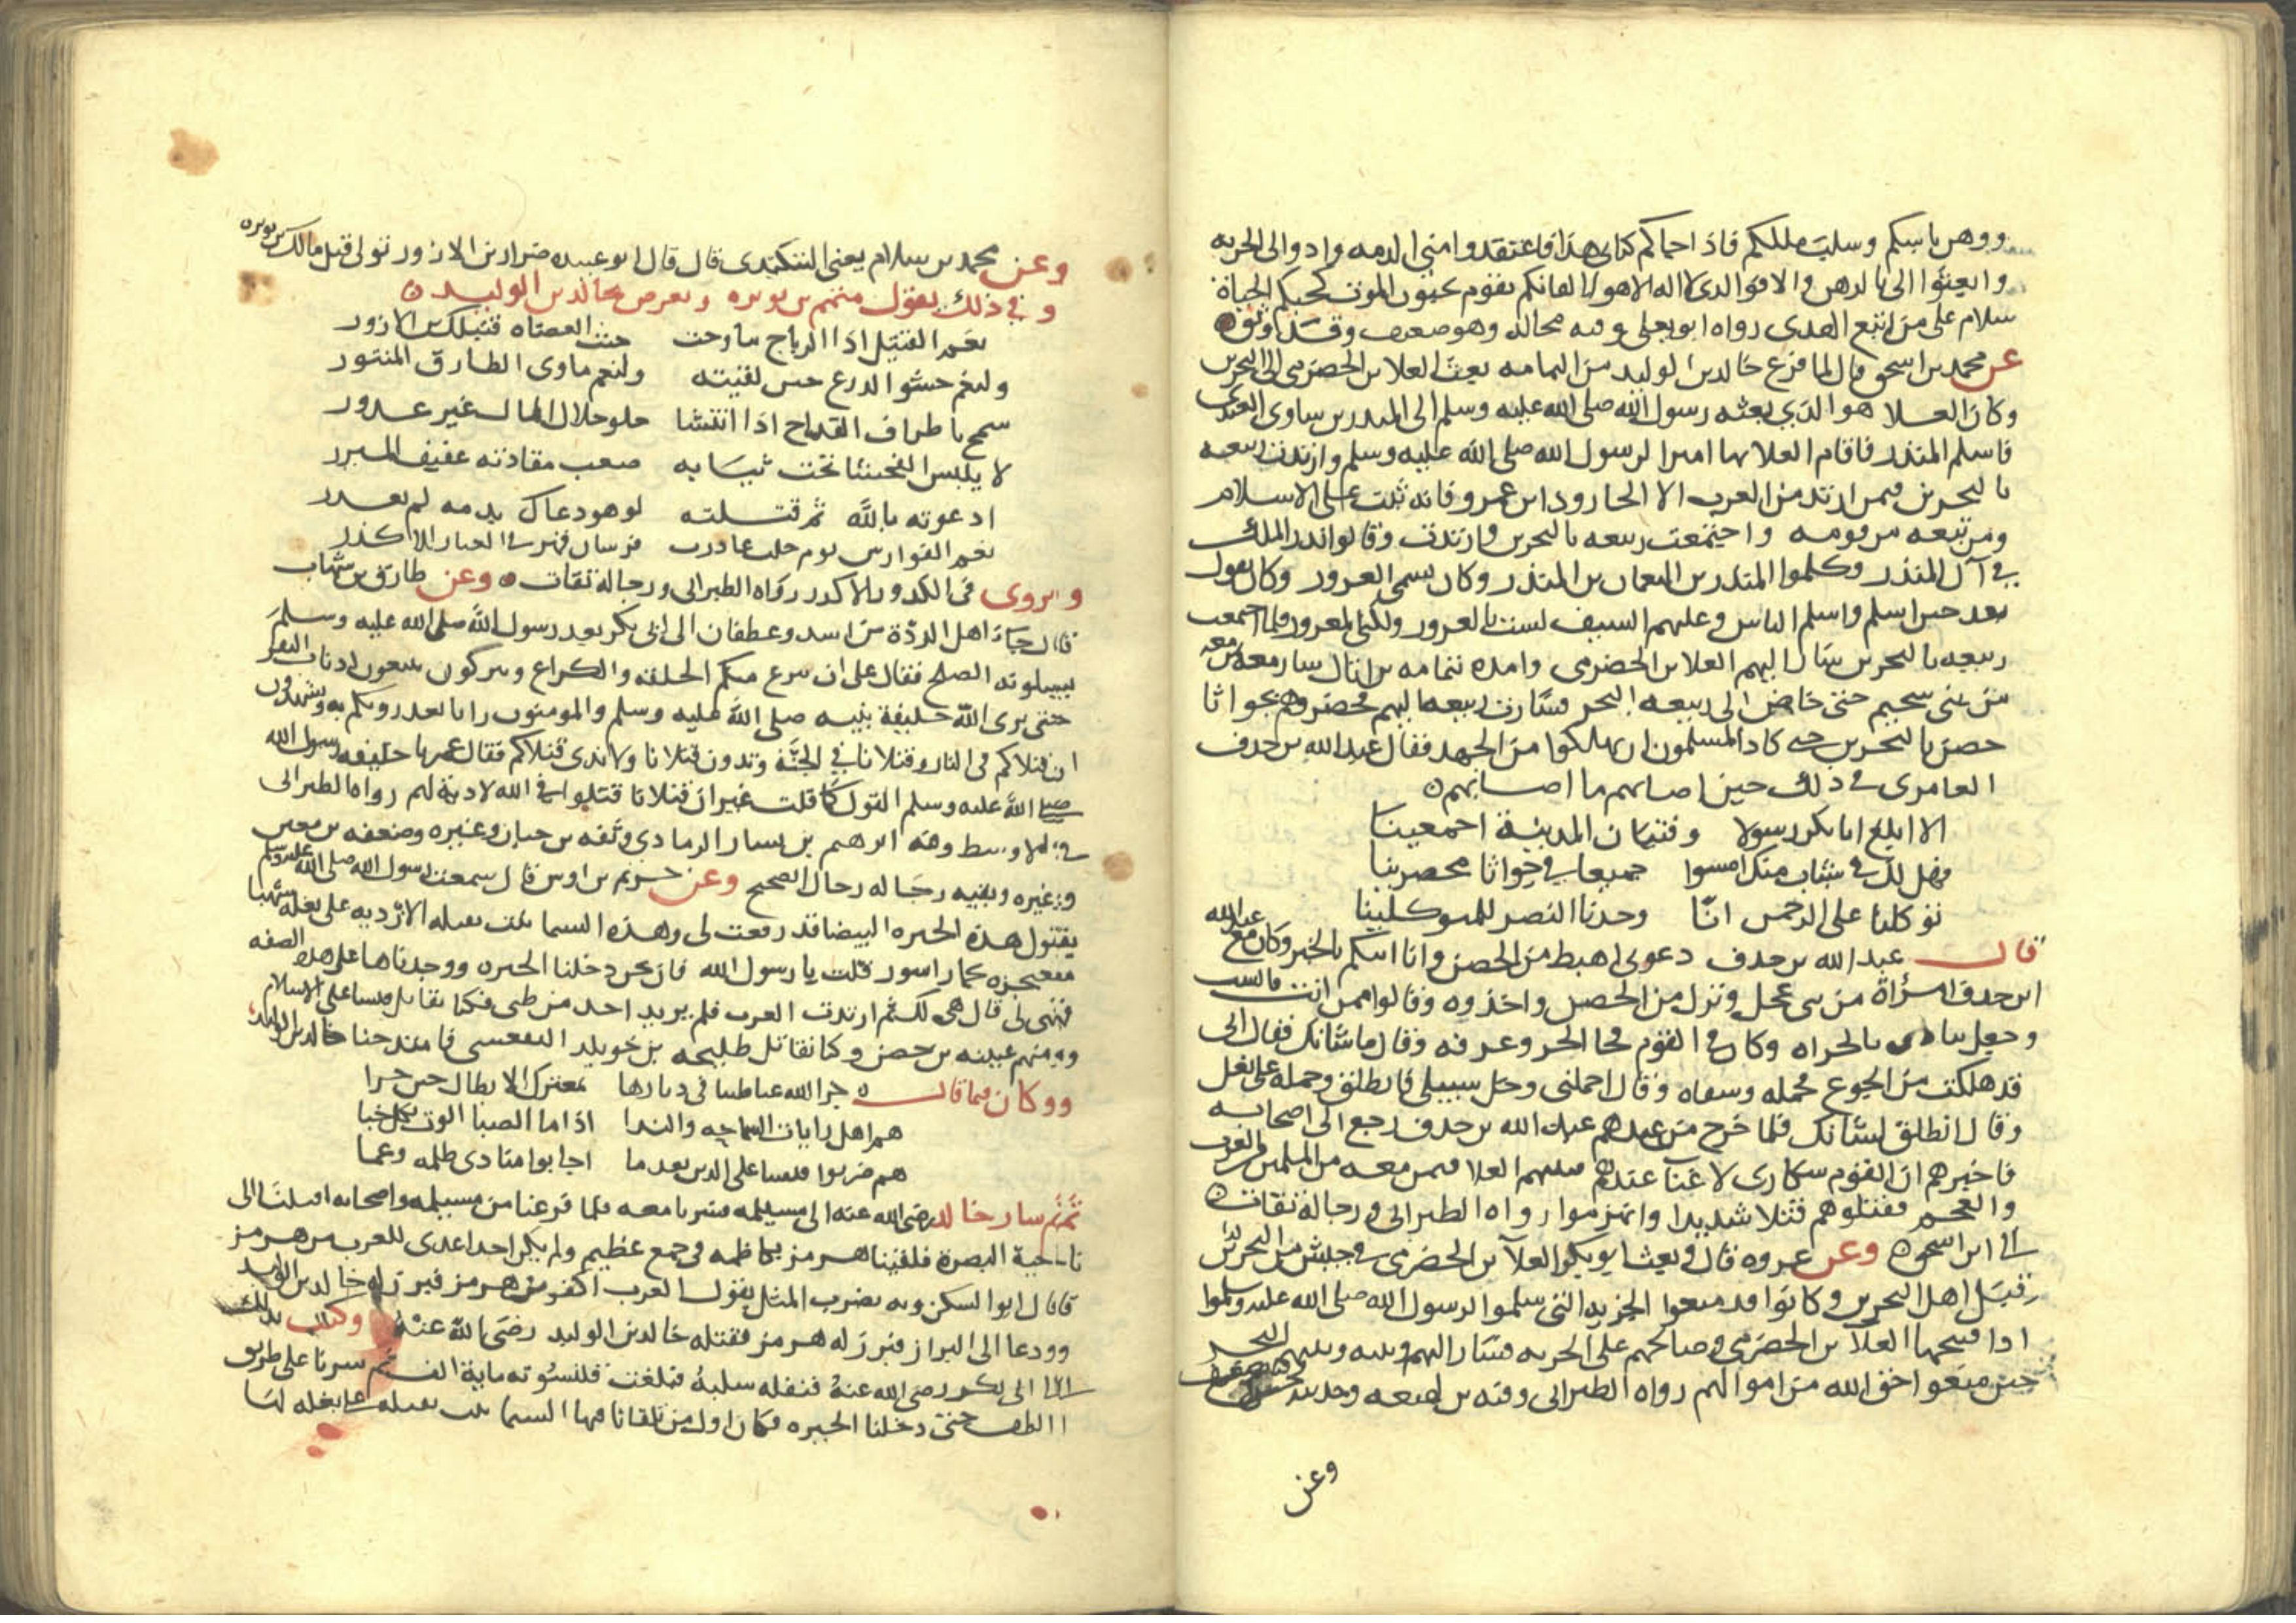 ووهن باسكم وسلب ملككم فاذا جاكم كتابي هذا فاعتقدوا مني الذمه وادوا الي الجزيه
وابعثوا الى بالرهن والا فوالذي لا اله الا هو لالقاكم بقوم يحبون الموت كحبكم الحياة
سلام على من اتبع الهدى رواه ابو يعلى وفيه مجالد وهو ضعيف وقد وثق
عن محمد بن اسحق قال لما فرغ خالد بن الوليد من اليمامه بعث العلا بن الحضرمي الى البحرين
وكان العلا هو الذي بعثه رسول الله صلى الله عليه وسلم الى المنذر بن ساوى العبدي
فاسلم المنذر فاقام العلا بها اميرا لرسول الله صلى الله عليه وسلم وارتدت ربيعه
بالبحرين فيمن ارتد من العرب الا الجارود ابن عمرو فانه ثبت على الاسلام
ومن تبعه من قومه واجتمعت ربيعه بالبحرين وارتدت وقالوا نرد الملك
في آل المنذر وكلموا المنذر بن النعمان بن المنذر وكان يسمى الغرور وكان يقول
بعد حين اسلم واسلم الناس وعليهم السيف لست بالغرور ولكني المغرور فلما اجتمعت
ربيعه بالبحرين سار اليهم العلا بن الحضرمي وامده بثمامه بن اثال سار معه من معه
من بني سحيم حتى خاض الى ربيعه البحر فسارت ربيعه اليهم فحصروهم بجواثا
حصن بالبحرين حتى كاد المسلمون ان يهلكوا من الجهد فقال عبد الله بن حذف
العامري في ذلك حين اصابهم ما اصابهم
الا ابلغ ابا بكر رسولا وفتيان المدينة اجمعينا
فهل لك في شباب منك امسوا جميعا في جواثا محصرينا
توكلنا على الرحمن انا وجدنا النصر للمتوكلينا
قال عبد الله بن حذف دعوني اهبط من الحصن وانا اتيكم بالخبر وكان مع عبد الله
ابن حذف امرأة من بني عجل ونزل من الحصن واخذوه وقالوا ممن انت فانتسب
وجعل ينادي يا ابجراه وكان في القوم فجا ابجر وعرفه وقال ما شانك فقال اني
قد هلكت من الجوع فحمله وسقاه وقال احملني وخل سبيلي فانطلق وحمله على بغل
وقال انطلق لشانك فلما خرج من عندهم عبد الله بن حذف رجع الى اصحابه
فاخبرهم ان القوم سكارى لا غنا عندهم فبيتهم العلا فيمن معه من المسلمين من العرب
والعجم فقتلوهم قتلا شديدا وانهزموا رواه الطبراني ورجاله ثقات
الى ابن اسحق وعن عروه قال وبعث ابو بكر العلا بن الحضرمي في جيش من البحرين
قبل اهل البحرين وكانوا قد منعوا الجزيه التي سلموا لرسول الله صلى الله عليه وسلم
اذا فتحها العلا بن الحضرمي وصالحهم على الجزيه فسار اليهم وبينه وبينهم البحر
حين منعوا حق الله من اموالهم رواه الطبراني وفيه بن لهيعه وحديثه حسن
وعن
وعن محمد بن سلام يعني البيكندي قال قال ابو عبيده ضرار بن الازور تولى قتل مالك بن نويره
وفي ذلك يقول متمم بن نويره ويعرض بخالد بن الوليد
نعم القتيل اذا الرياح تناوحت تحت العضاه قتيلك ابن الازور
ولنعم حشو الدرع حين لقيته ولنعم ماوى الطارق المتنور
سمح باطراف القداح اذا انتشا حلو حلال المال غير عذور
لا يلبس الفحشا تحت ثيابه صعب مقادته عفيف المئزر
ادعوته بالله ثم قتلته لو هو دعاك بذمه لم يغدر
نعم الفوارس يوم حلت غادرت فرسان فهر في الغبار الاكدر
ويروى في الكدور الاكدر رواه الطبراني ورجاله ثقات وعن طارق بن شهاب
قال جاء اهل الردة من اسد وغطفان الى ابي بكر بعد رسول الله صلى الله عليه وسلم
يسلونه الصلح فقال على ان ننزع منكم الحلقه والكراع وتتركون تتبعون اذناب البقر
حتى يرى الله خليفة نبيه صلى الله عليه وسلم والمومنون رايا يعذرونكم به وتشهدون
ان قتلاكم في النار وقتلانا في الجنة وتدون قتلانا ولا ندي قتلاكم فقال عمر يا خليفه رسول الله
صلى الله عليه وسلم القول كما قلت غير ان قتلانا قتلوا في الله لا دية لهم رواه الطبراني
في الاوسط وفيه ابرهيم بن بشار الرمادي وثقه بن حبان وغيره وضعفه بن معين
وغيره وبقيه رجاله رجال الصحيح وعن خريم بن اوس قال سمعت رسول الله صلى الله عليه وسلم
يقول هذه الحيره البيضا قد رفعت لي وهذه الشيما بنت بقيله الازديه على بغله شهبا
معتجزه بخمار اسود قلت يا رسول الله فان نحن دخلنا الحيره ووجدناها على هذه الصفه
فهي لي قال هي لك ثم ارتدت العرب فلم يرتد احد من طي فكنا نقاتل قيسا على الاسلام
ومنهم عيينه بن حصن وكنا نقاتل طليحه بن خويلد الفقعسي فامتدحنا خالد بن الوليد
ووكان فيما قال جزا الله عنا طيا في ديارها بمعترك الابطال خير جزا
هم اهل رايات السماحه والندا اذا ما الصبا الوت بكل خبا
هم ضربوا قيسا على الدين بعد ما اجابوا منادي ظلمه وعما
ثم سار خالد رضى الله عنه الى مسيلمه فسرنا معه فلما فرغنا من مسيلمه واصحابه اقبلنا الى
ناحية البصرة فلقينا هرمز بكاظمه في جمع عظيم ولم يكن احد اعدى للعرب من هرمز
قال ابو السكن وبه يضرب المثل يقول العرب اكفر من هرمز فبرز له خالد بن الوليد
وودعا الى البراز فبرز له هرمز فقتله خالد بن الوليد رضى الله عنه وكتب بذلك
الى ابي بكر رضى الله عنه فنفله سلبه فبلغت قلنسوته ماية الف ثم سرنا على طريق
الطف حتى دخلنا الحيره فكان اول من تلقانا فيها الشيما بنت بقيله على بغله لها